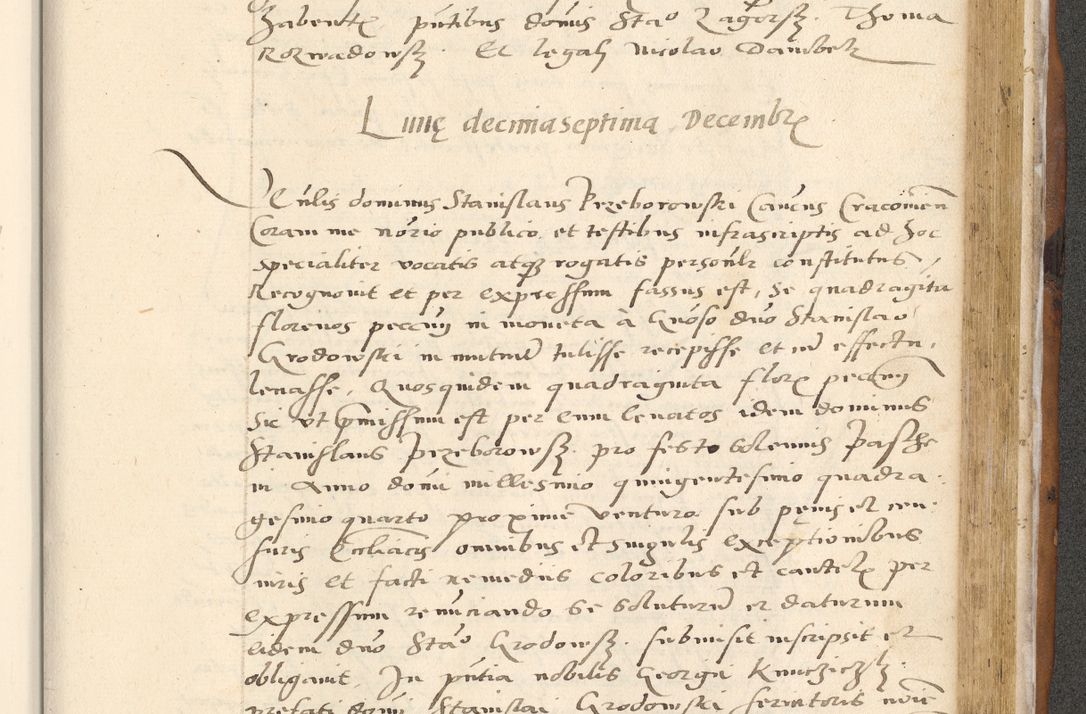 habentq putibus domis Stao Zagorsz. Thoma
Rozwadowsz. Et legalj Nicolao Dambek
Lunę decimaseptima Decembrz
Vnlis dominus Stanislaus Przeborowski Cancus Cracovien
Coram me nōrio publico, et testibus infrascriptis ad hoc
specialiter vocatis atqz rogatis personlr constitutus,
Recognovit et per expressum fassus est, se quadraginta
florenos pecun in moneta à Gnoso dno Stanislao
Grodowski in mutuū tulisse recepisse et in effectu
levasse, Quosquidem quadraginta flory pecun
Sic vt pmissum est per eum levatos idem dominus
Stanislaus Przeborowsz. pro festo solemnis Pasche
in Anno domi millesimo quingentesimo quadra
gesimo quarto proxime venturo sub pęnis et cen
suris Eccliacis omnibus et singulis exceptionibus
iuris et facti remediis coloribus et cautely per
expressum renunciando se soluturū et daturum
eidem dno Stao Grodowsz. submisit inscripsit et
obligavit. In pntia nobilis Georgii
prefati domi Stanislai Grodowski servitoris